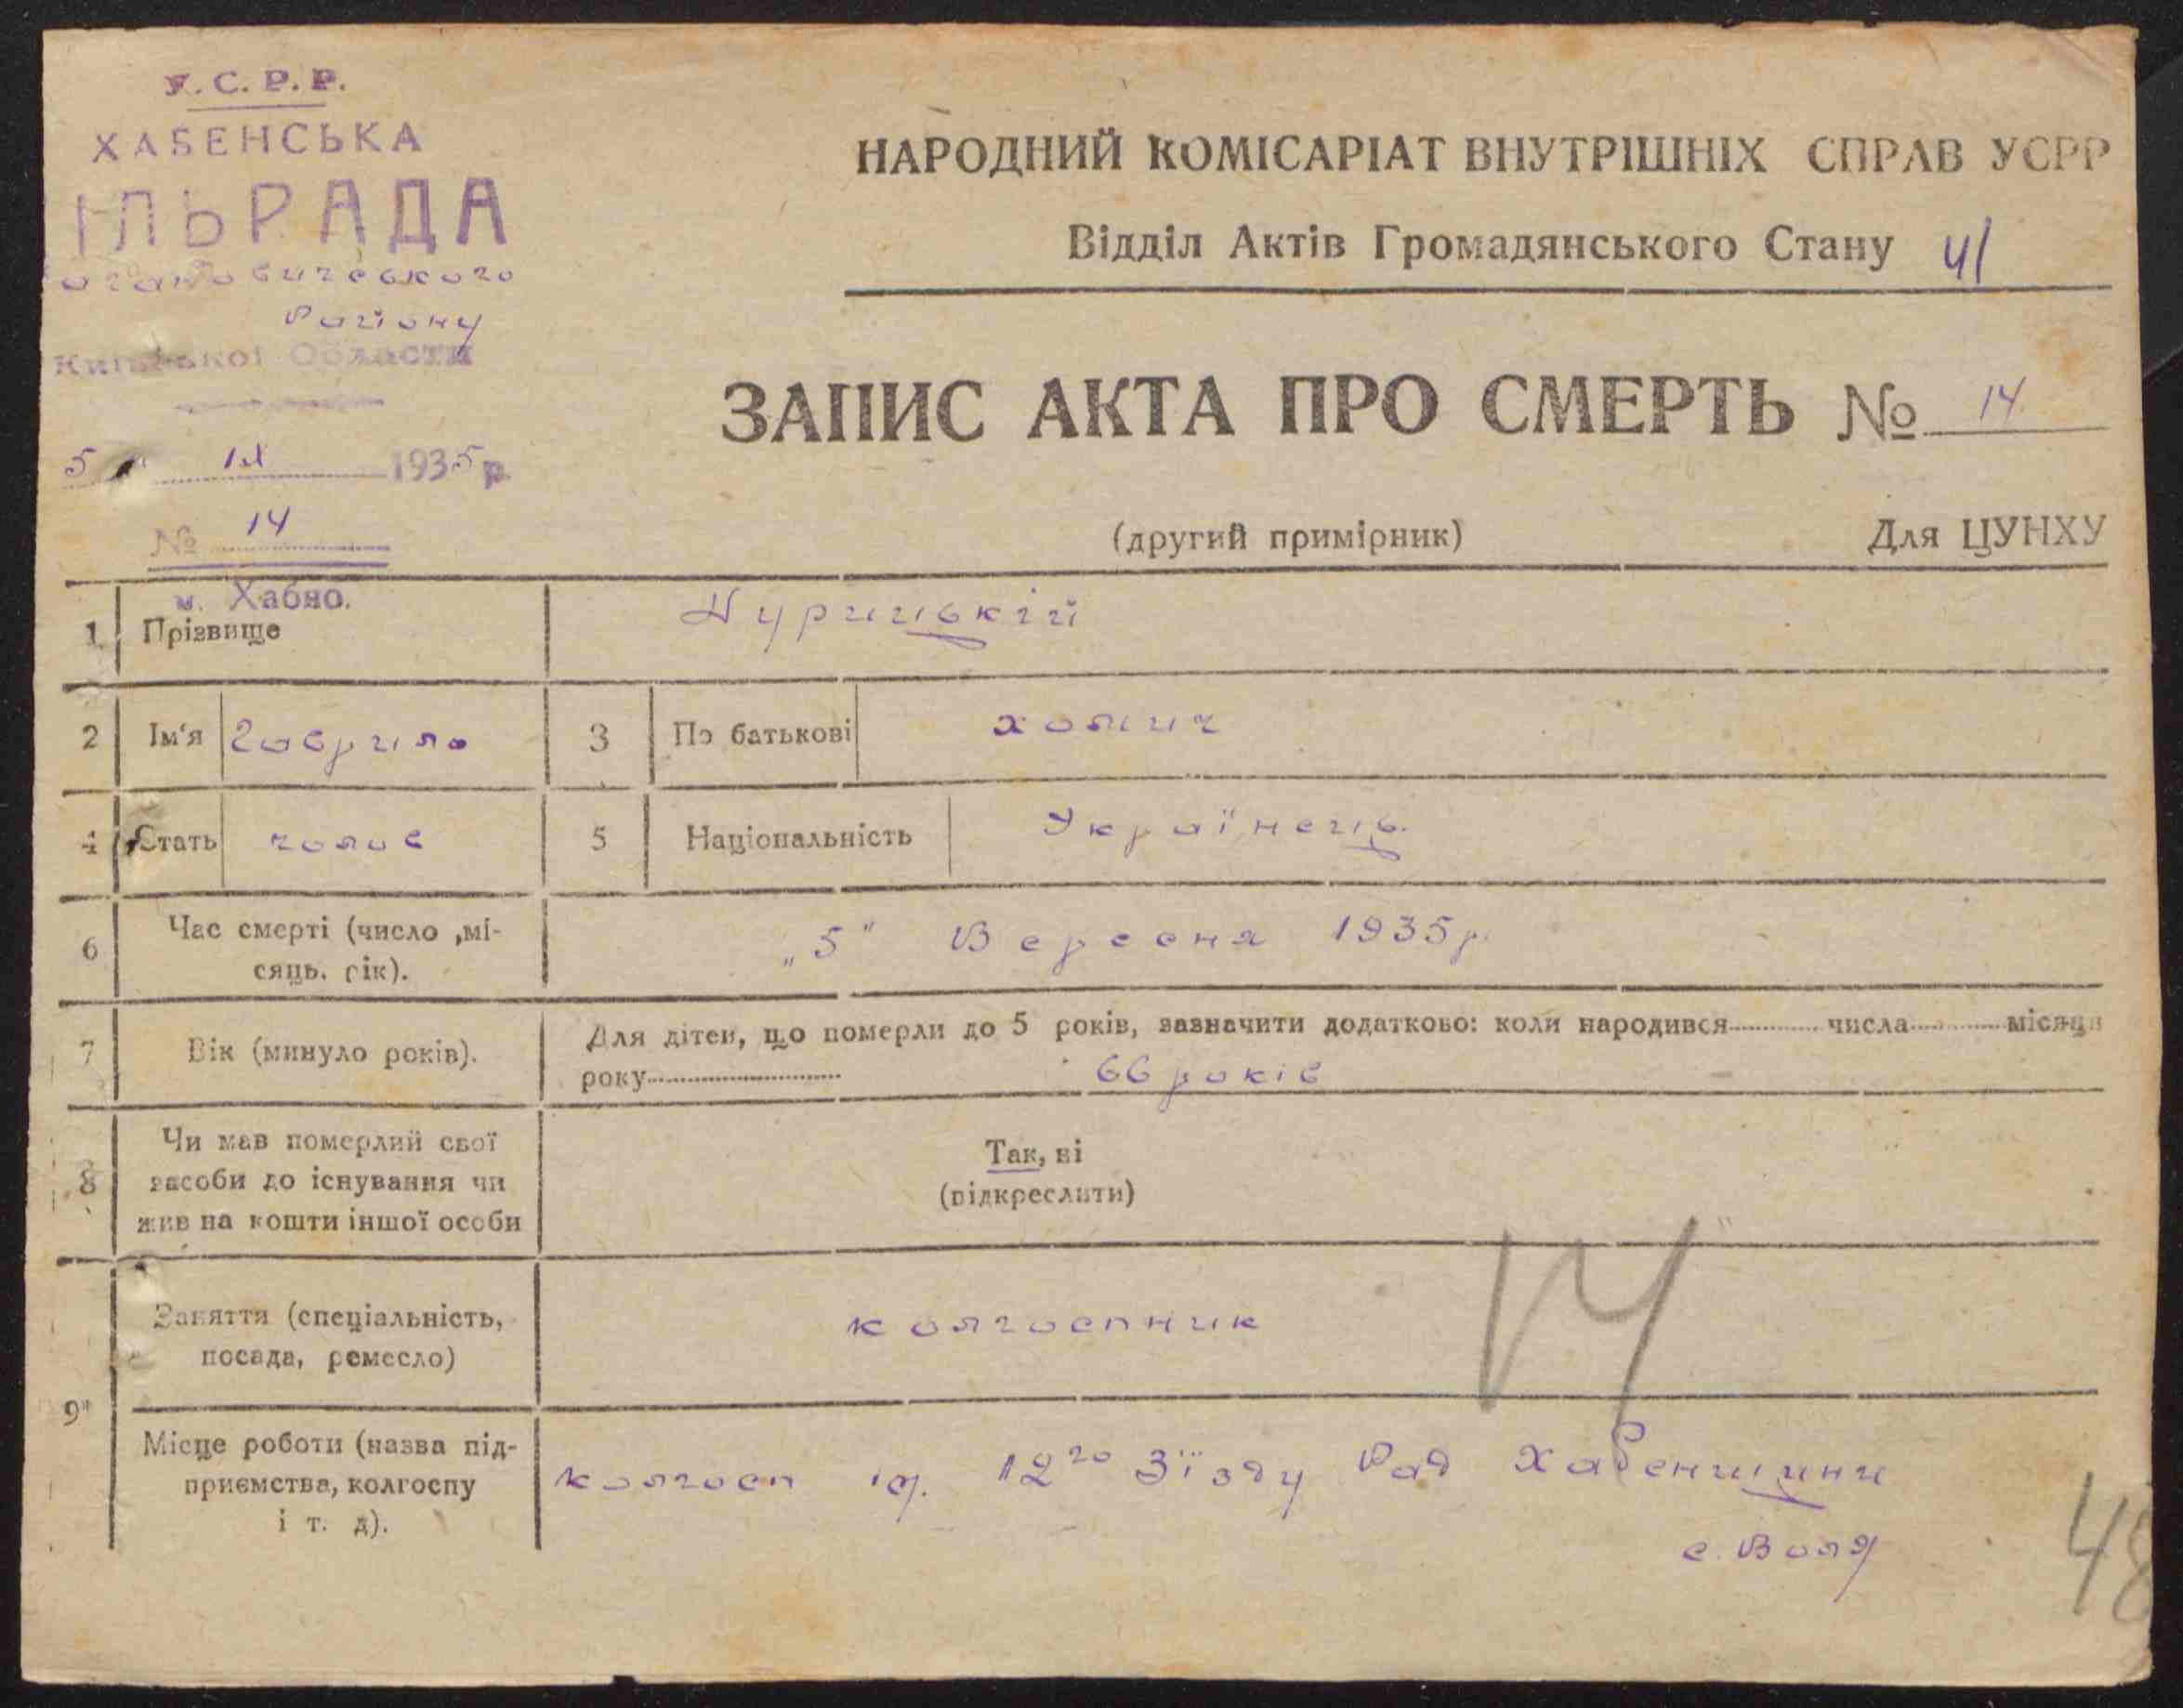 У.С.Р.Р.
ХАБЕНСЬКА
ІЛЬРАДА
Району
Київської Области
5 ІХ 1935 р.
№ 14
м. Хабно.
НАРОДНИЙ КОМІСАРІАТ ВНУТРІШНІХ СПРАВ УСРР
Відділ Актів Громадянського Стану 41
ЗАПИС АКТА ПРО СМЕРТЬ № 14
(другий примірник) Для ЦУНХУ
1 Прізвище
2 Ім'я Гаврило 3 По батькові хомич
4 Стать чолов 5 Національність Українець.
6 Час смерті (число ,мі-
сяць. рік). „5" Вересня 1935 р.
7 Вік (минуло років). Для дітей, що померли до 5 років, зазначити додатково: коли народився числа місяця
року 66 років
8 Чи мав померлий свої
засоби до існування чи
жив на кошти іншої особи
Так, ні
(підкреслити)
9 Заняття (спеціальність,
посада, ремесло)
колгоспник
14
Місце роботи (назва під-
приємства, колгоспу
і т. д).
колгосп ім. 12го Зїзду Рад Хабенщини
с. Воля
48